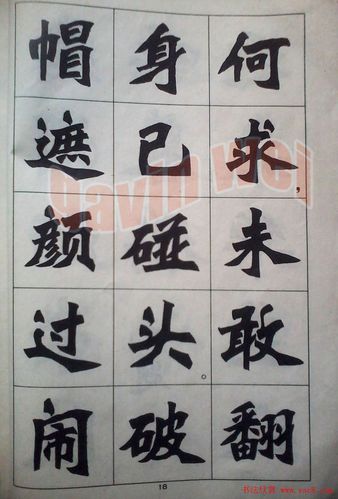 何求，未敢翻
身已碰头。破
帽遮颜过闹
gavin wei
18
书法欣赏
www.yac8.com